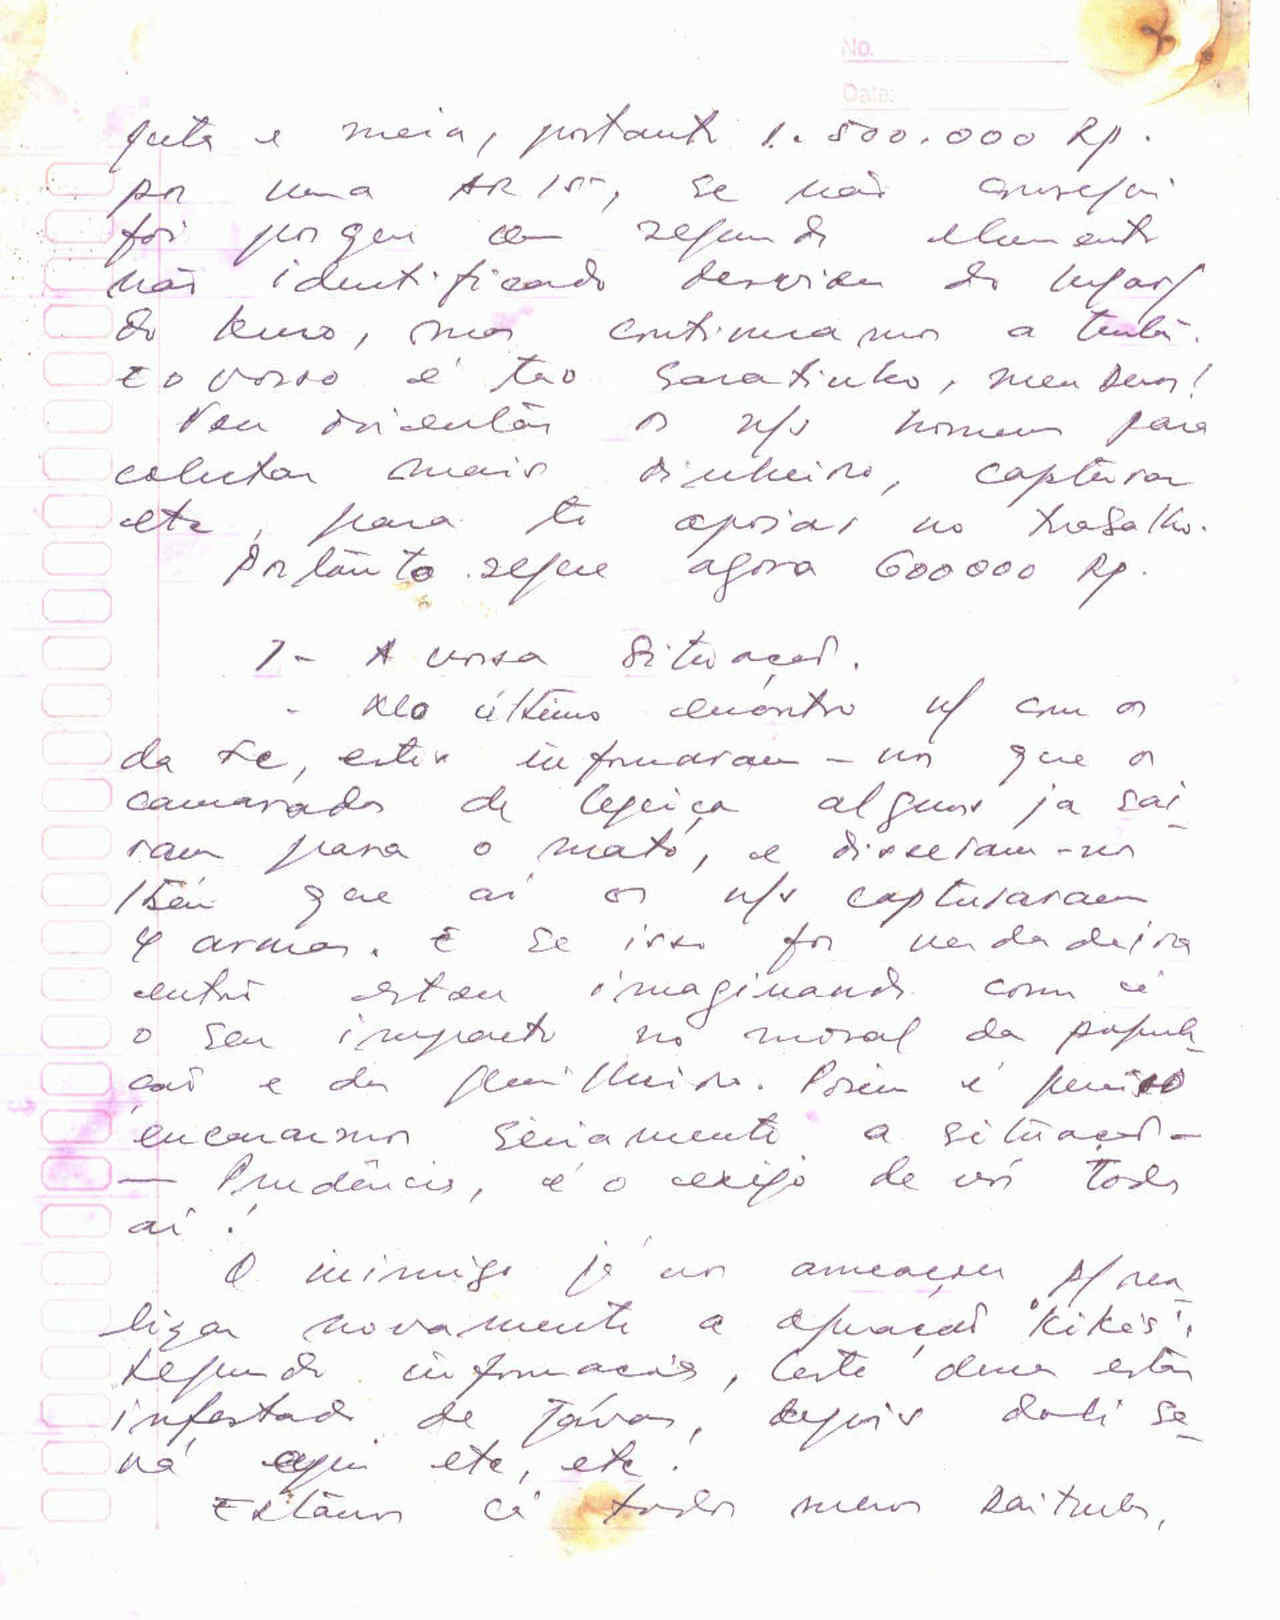 No.
Data:
e meia, portanto 1.500.000 Rp.
por uma AR15, se não consegui
foi porque um segundo elemento
não identificado desviou do lugar
do kuro, mas continuamos a tentar.
E o vosso é tão baratinho, meu Deus!
Vou orientar os n/s homens para
colectar mais dinheiro, capturar
etc, para te apoiar no trabalho.
Portanto segue agora 600000 Rp.
7- A vossa situação.
- No último encontro n/ com os
da FC, estes informaram-nos que os
camaradas de alguns ja sai-
ram para o mato, e disseram-nos
tbém que aí os n/s capturaram
4 armas. E se isso for verdadeiro
então estou imaginando como é
o seu impacto no moral da popula-
ção e da guerrilheira. Porém é preciso
encararmos seriamente a situação -
- Prudência, é o exijo de vós todos
aí!
O inimigo já nos ameaçou p/ rea-
lizar novamente a operação "Kikis".
Segundo informações, Leste deve estar
infestado de Jávas, depois dali se-
rá aqui etc, etc.
Estámos cá todos menos Raitrulo,